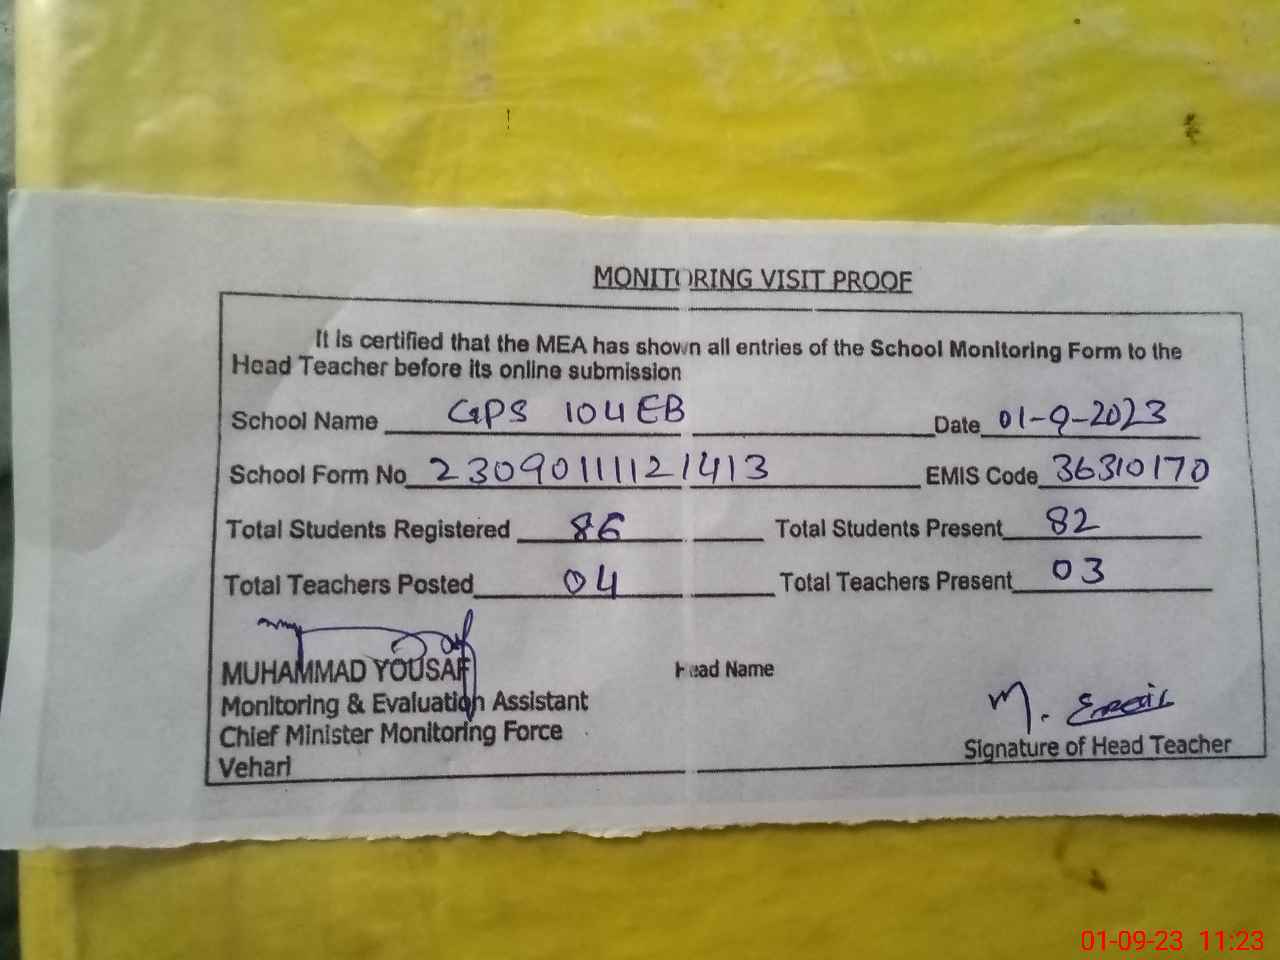 MONITORING VISIT PROOF
It is certified that the MEA has shown all entries of the School Monitoring Form to the
Head Teacher before its online submission
School Name GPS 104EB Date 01-9-2023
School Form No 23090111121413 EMIS Code 36310170
Total Students Registered 86 Total Students Present 82
Total Teachers Posted 04 Total Teachers Present 03
MUHAMMAD YOUSAF Head Name
Monitoring & Evaluation Assistant
Chief Minister Monitoring Force M.
Vehari Signature of Head Teacher
01-09-23 11:23